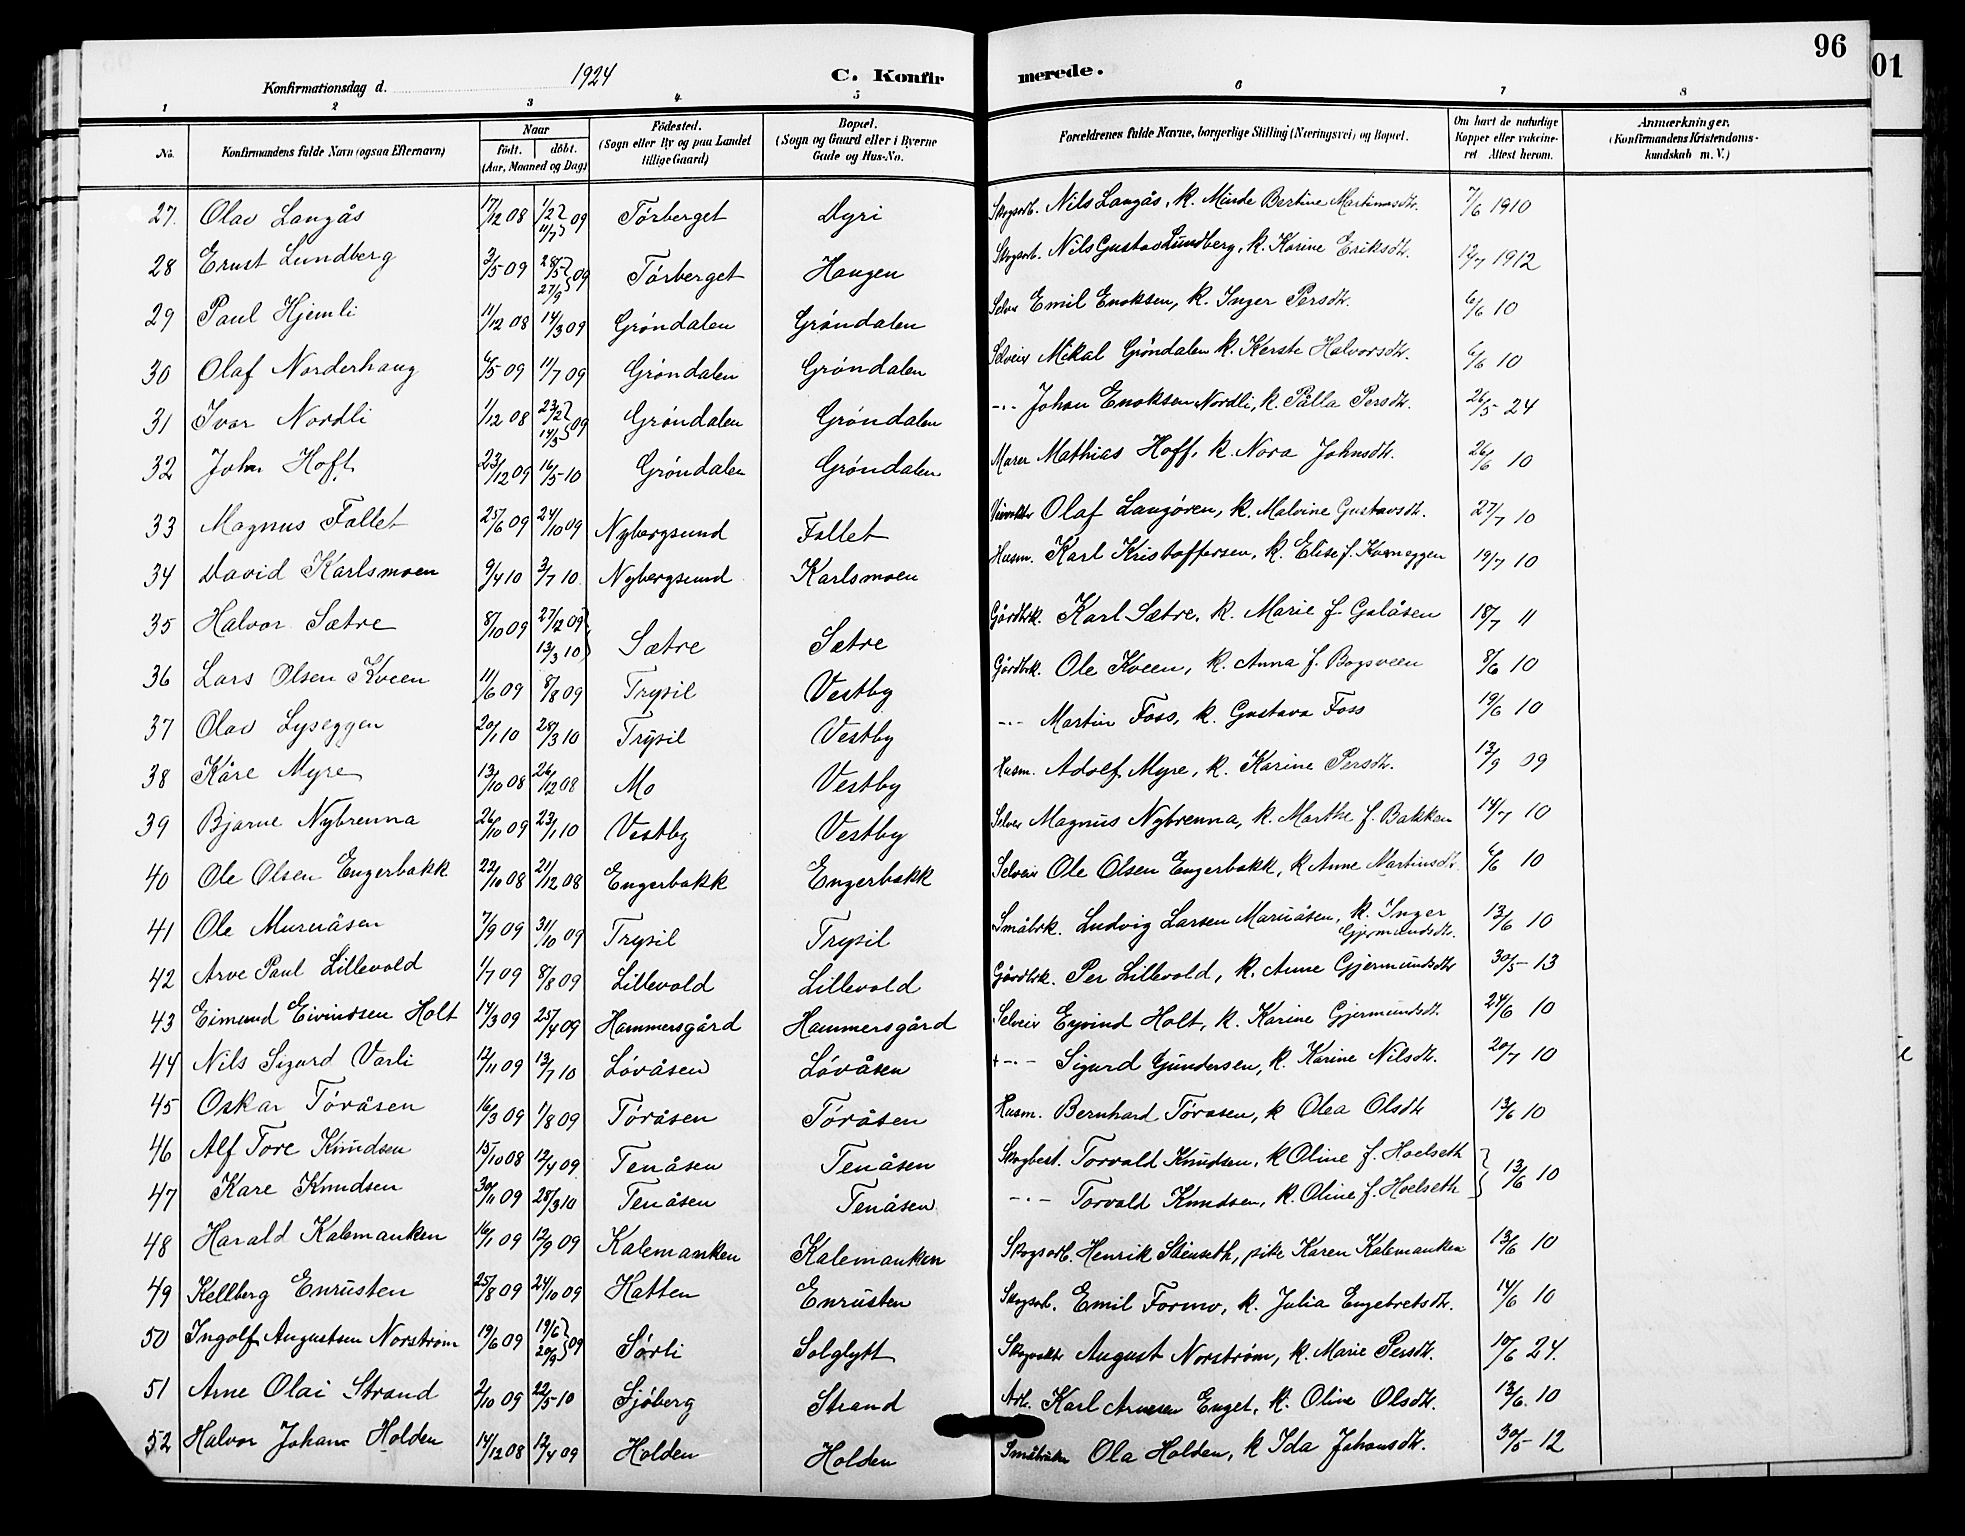 96
01
Konfirmationsdag d. 1924 C. Konfirmerede.
1 2 3 4 5 6 7 8
No. Konfirmandens fulde Navn (ogsaa Efternavn) Naar født. døbt. (Aar, Maaned og Dag) Fødested. (Sogn eller By og paa Landet tillige Gaard) Bopæl. (Sogn og Gaard eller i Byerne Gade og Hus-No. Forældrenes fulde Navne, borgerlige Stilling (Næringsvei) og Bopæl. Om havt de naturlige Kopper eller vakcineret Attest herom. Anmærkninger, (Konfirmandens Kristendomskundskab m. V.)
27. Olav Langås 17/12 08 1/2 11/7 } 09 Tørberget Dyri Skogsarb. Nils Langås, k. Minde Bertine Martinusdtr. 7/6 1910
28 Ernst Lundberg 3/5 09 28/5 27/9 } 09 Tørberget Haugen Skogsarb. Nils Gustav Lundberg, k. Karine Eriksdtr. 12/7 1912
29 Paul Hjemli 11/12 08 14/3 09 Grøndalen Grøndalen Selvei Emil Enoksen, k. Inger Persdtr. 6/6 10
30 Olaf Norderhaug 6/5 09 11/7 09 Grøndalen Grøndalen Selveier Mikal Grøndalen k. Kerste Halvorsdtr. 6/6 10
31 Ivar Nordli 1/12 08 23/2 14/3 } 09 Grøndalen Grøndalen -"- Johan Enoksen Nordli, k. Pålla Persdtr. 26/5 - 24
32 John Hoff 23/12 09 16/5 - 10 Grøndalen Grøndalen Murer Mathias Hoff, k. Nora Johnsdtr. 26/6 10
33 Magnus Fallet 25/6 09 24/10 09 Nybergsund Fallet Olaf Langøren, k. Malvine Gustavsdtr. 27/7 10
34 David Karlsmoen 9/4 10 3/7 10. Nybergsund Karlsmoen Husm. Karl Kristoffersen, k. Elise f. Kverneggen 19/7 10
35 Halvor Sætre 8/10 09 27/12 09 13/3 10 } Sætre Sætre Gårdbrk. Karl Sætre, k. Marie f. Galåsen 18/7 11
36 Lars Olsen Kveen 11/6 09 8/8 09 Trysil Vestby Gårdbrk. Ole Kveen, k. Anna f. Bogsveen 8/6 10
37 Olav Lyseggen 20/1 10 28/3 10 Trysil Vestby -"- Martin Foss, k. Gustava Foss 19/6 10
38 Kåre Myre 13/10 08 26/12 08 Mo Vestby Husm. Adolf Myre, k. Karine Persdtr. 13/9 09
39 Bjarne Nybrenna 26/10 09 23/1 10 Vestby Vestby Selvei Magnus Nybrenna, k. Marthe f. Bakken 14/7 10
40 Ole Olsen Engerbakk 22/10 08 21/12 08 Engerbakk Engerbakk Selveier Ole Olsen Engerbakk, k Anne Martinsdtr. 6/6 10
41 Ole Muruåsen 7/9 09 31/10 09 Trysil Trysil Småbrk. Ludvig Larsen Muruåsen, k. Inger Gjermundsdtr. 13/6 10
42 Arve Paul Lillevold 1/7 09 8/8 09 Lillevold Lillevold Gårdbrk. Per Lillevold, k. Anne Gjermundsdtr 30/5 - 13
43 Eimund Eivindsen Holt 14/3 09 25/4 09 Hammersgård Hammersgård Selveier Eyvind Holt, k. Karine Gjermundsdtr. 24/6 10
44 Nils Sigurd Varli 12/11 09 13/7 10 Løvåsen Løvåsen + -"- Sigurd Gundersen, k. Karine Nilsdtr. 20/7 10
45 Oskar Tøråsen 16/3 09 1/8 09 Tøråsen Tøråsen Husm. Bernhard Tøråsen, k Olea Olsdtr 13/6 10
46 Alf Tore Knudsen 15/10 08 12/4 09 Tenåsen Tenåsen Skogbest. Torvald Knudsen, k Oline f. Hoelseth } 13/6 10
47 Kare Knudsen 30/11 09 28/3 10 Tenåsen Tenåsen -"- Torvald Knudsen, k. Oline f. Hoelseth
48 Harald Kalemanken 16/1 09 12/9 09 Kalemanken Kalemanken Skogsarb. Henrik Støenseth, pike Karen Kalemanken 13/6 10
49 Kellberg Enrusten 25/8 09 24/10 09 Hatten Enrusten Skogsarb. Emil Formo, k. Julia Engebretsdtr. 14/6 10
50 Ingolf Augustsen Norstrøm 19/6 09 19/6 20/9 } 09 Sørli Solglytt August Norstrøm, k. Marie Persdtr. 10/6 24.
51 Arne Olai Strand 2/10 09 22/5 - 10 Sjøberg Strand Arb. Karl Arnesen Enget, k. Oline Olsdtr. 13/6. 10
52 Halvor Johan Holden 14/12 08 12/4 09 Holden Holden Småbruker Ola Holden, k Ida Johansdtr. 30/5 - 12